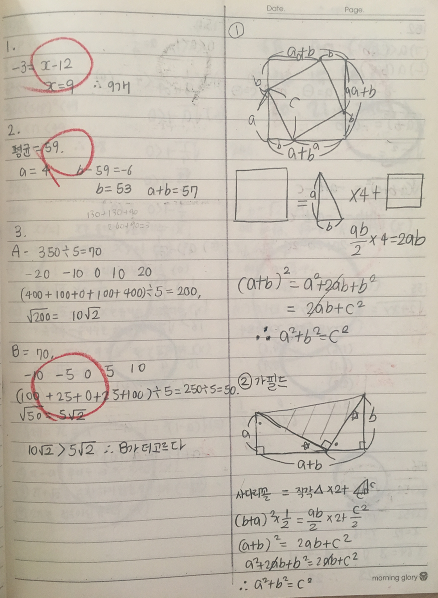 1.
-3= x-12
x=9 ∴ 9개
2.
평균=59.
a = 4 b-59=-6
b=53 a+b=57
3.
A- 350÷5=70
-20 -10 0 10 20
(400+100+0+100+400)÷5=200,
√200= 10√2
B= 70,
-10 -5 0 5 10
(100+25+0+25+100)÷5=250÷5=50.
√50= 5√2
10√2 > 5√2 ∴ B가 더 고르다
Date. Page.
①
a+b
b
b
a+b
c
a
a
b
b
a+b
= a b ×4+
ab/2 ×4=2ab
(a+b)²=a²+2ab+b²
= 2ab+c²
∴ a²+b²=c²
② 가필드
a
b
a+b
사다리꼴 = 직각△×2+
(b+a)²×1/2=ab/2×2+c²/2
(a+b)²= 2ab+c²
a²+2ab+b²=2ab+c²
∴ a²+b²=c²
morning glory